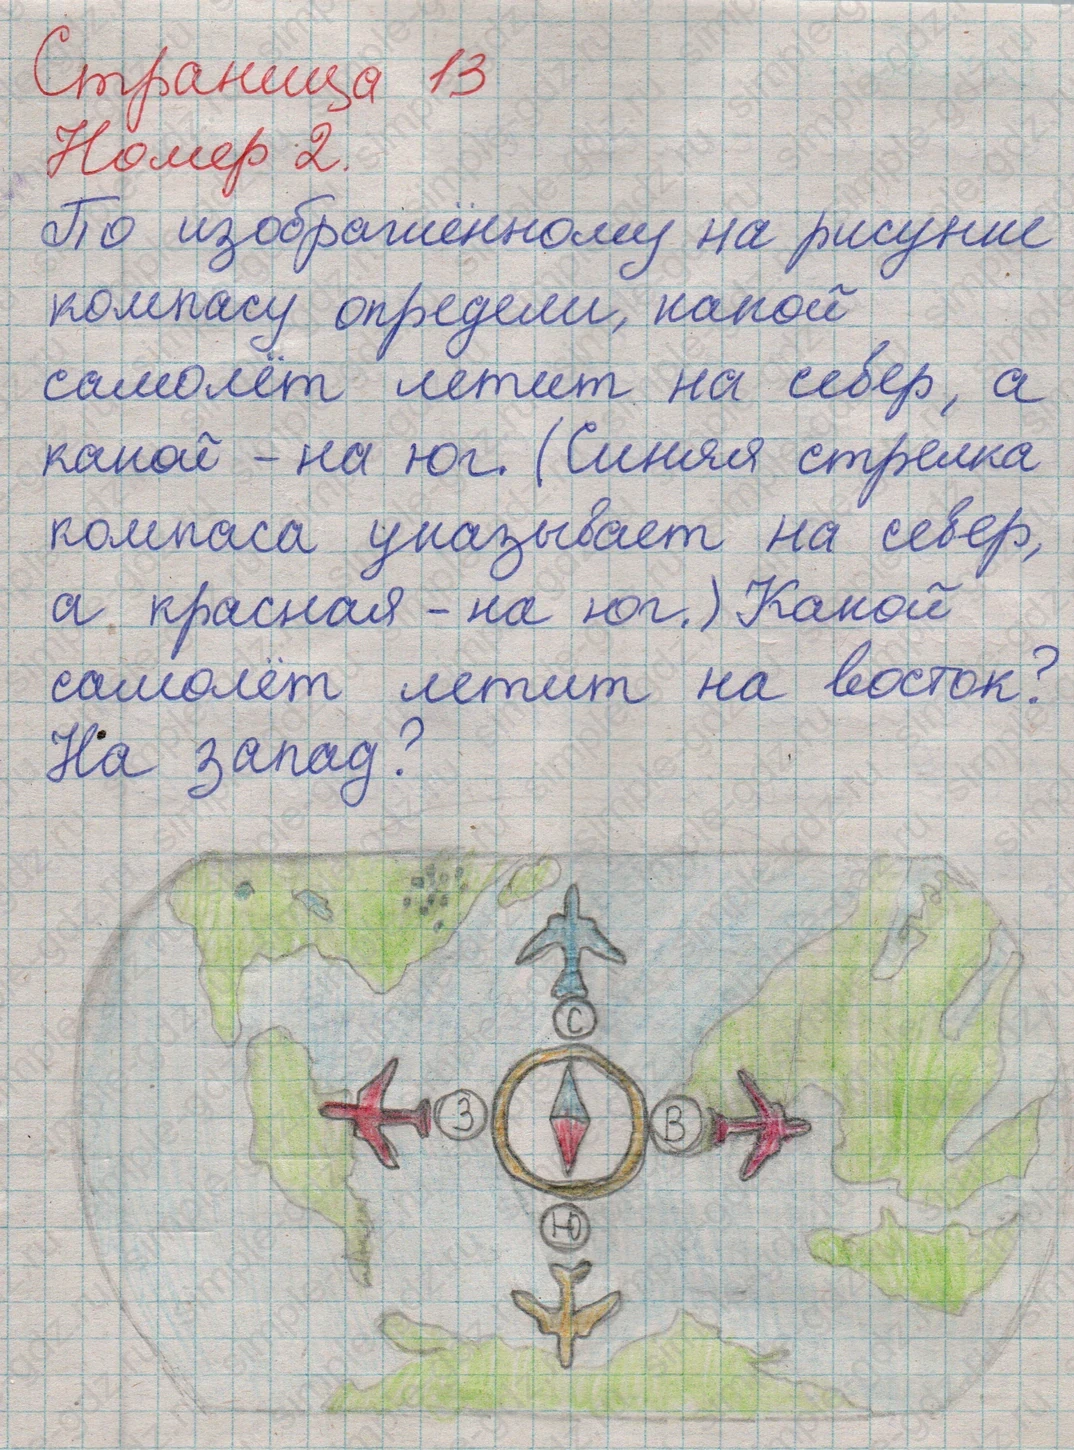 Страница 13
Номер 2.
По изображённому на рисунке
компасу определи, какой
самолёт летит на север, а
какой - на юг. (Синяя стрелка
компаса указывает на север,
а красная - на юг.) Какой
самолёт летит на восток?
На запад?
С
З
В
Ю
simple-gdz.ru